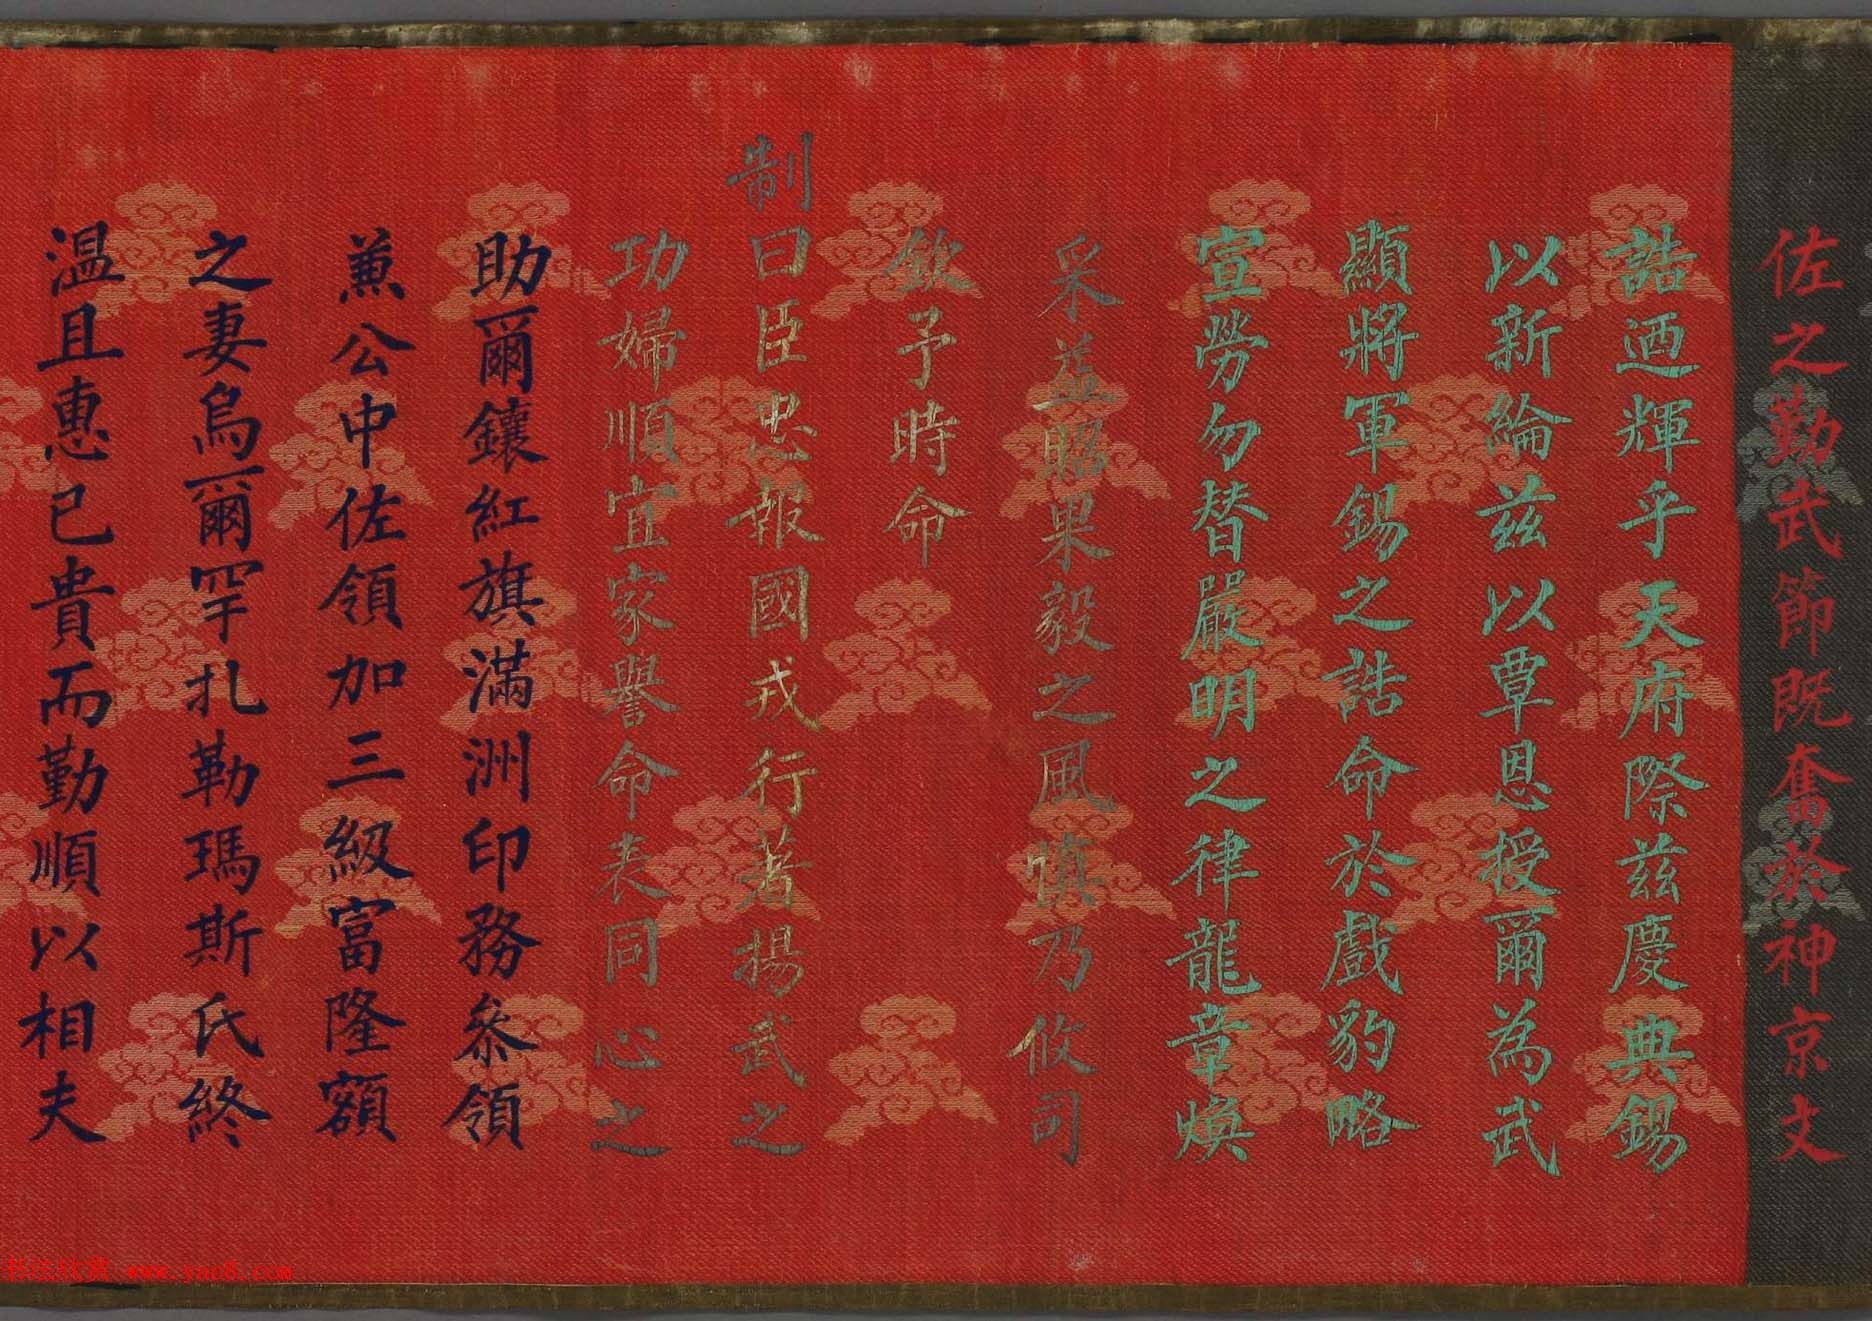 佐之勤武節既奮發神京文
誥迺輝乎天府際茲慶典錫
以新綸茲以覃恩授爾為武
顯將軍錫之誥命於戲豹略
宣勞勿替嚴明之律龍章煥
采益昭果毅之風慎乃攸司
欽予時命
制曰臣忠報國戎行著揚武之
功婦順宜家譽命表同心之
助爾鑲紅旗滿洲印務參領
兼公中佐領加三級富隆額
之妻烏爾罕扎勒瑪斯氏終
溫且惠已貴而勤順以相夫
书法欣赏 www.yac8.com